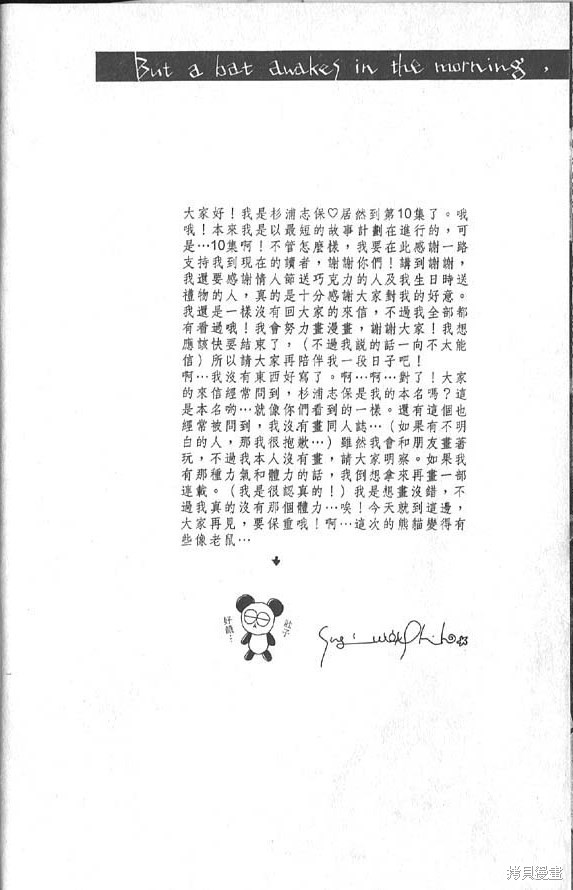 But a bat awakes in the morning,
大家好！我是杉浦志保♡居然到第10集了。哦
哦！本來我是以最短的故事計劃在進行的，可
是…10集啊！不管怎麼樣，我要在此感謝一路
支持我到現在的讀者，謝謝你們！講到謝謝，
我還要感謝情人節送巧克力的人及我生日時送
禮物的人，真的是十分感謝大家對我的好意。
我還是一樣沒有回大家的來信，不過我全部都
有看過哦！我會努力畫漫畫，謝謝大家！我想
應該快要結束了，（不過我說的話一向不太能
信）所以請大家再陪伴我一段日子吧！
啊…我沒有東西好寫了。啊…啊…對了！大家
的來信經常問到，杉浦志保是我的本名嗎？這
是本名喲…就像你們看到的一樣。還有這個也
經常被問到，我沒有畫同人誌…（如果有不明
白的人，那我很抱歉…）雖然我會和朋友畫著
玩，不過我本人沒有畫，請大家明察。如果我
有那種力氣和體力的話，我倒想拿來再畫一部
連載。（我是很認真的！）我是想畫沒錯，不
過我真的沒有那個體力…唉！今天就到這邊，
大家再見，要保重哦！啊…這次的熊貓變得有
些像老鼠…
肚子
好餓…
拷貝漫畫